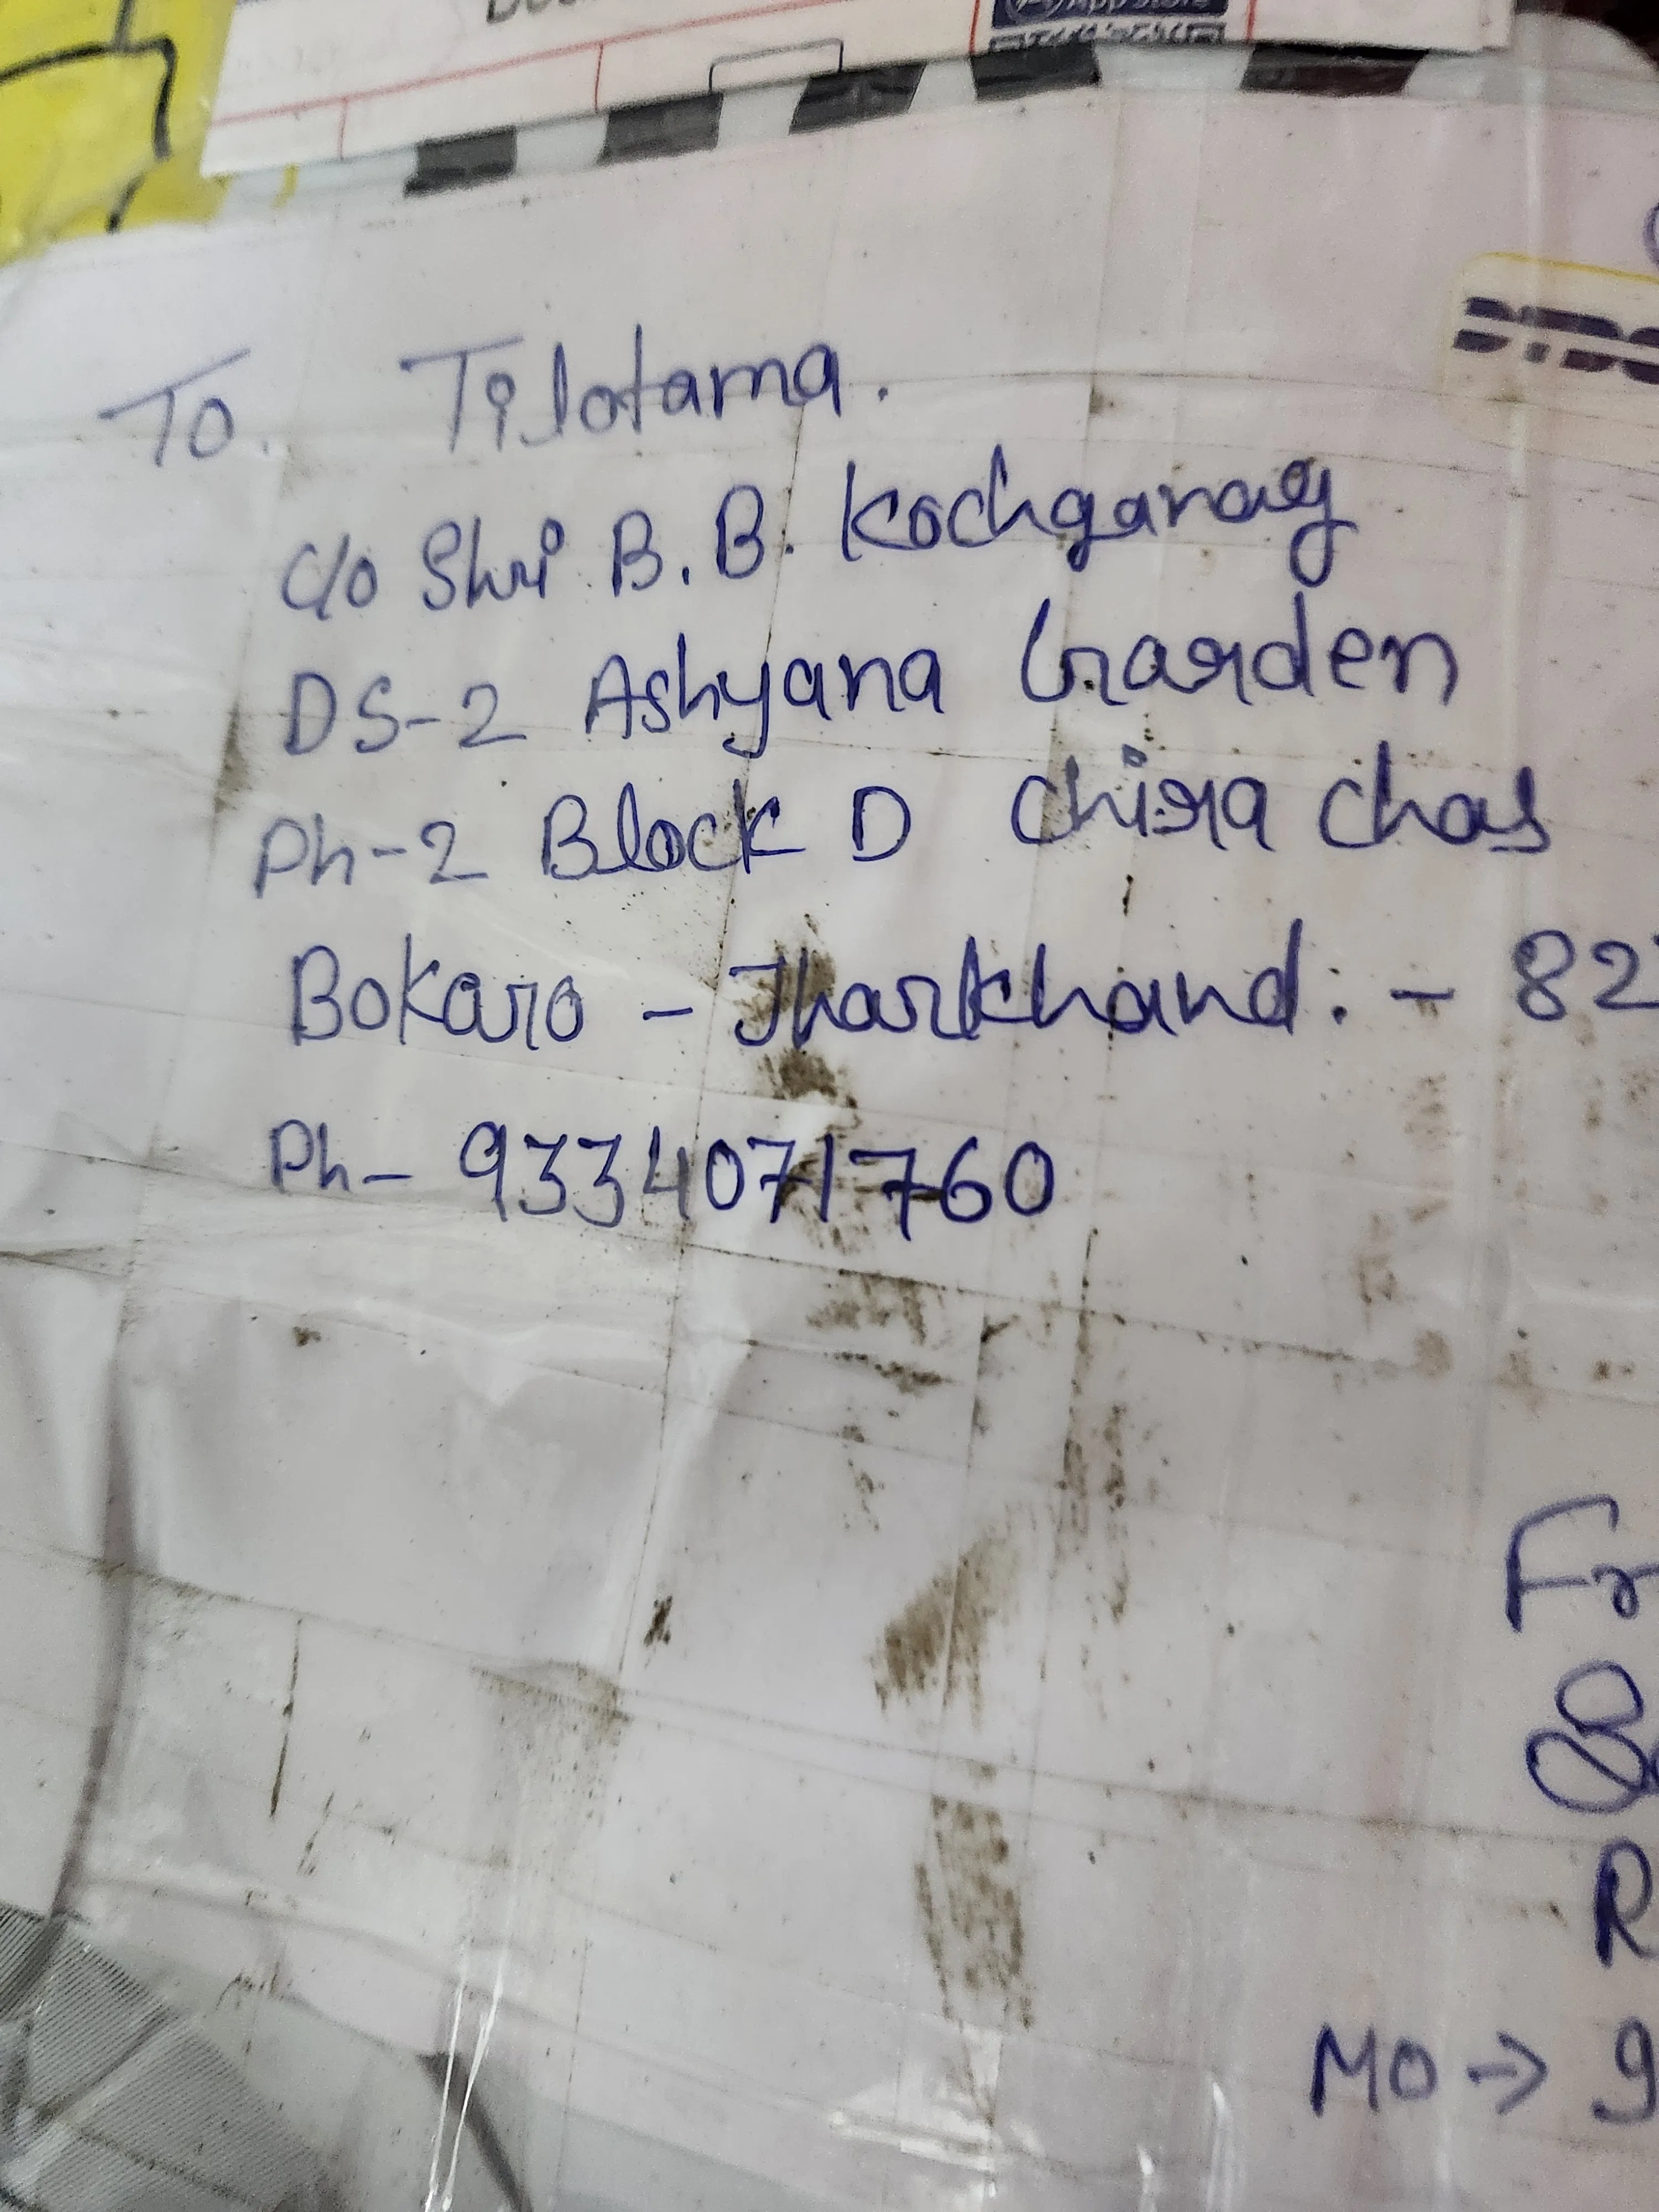 App Store
DTDC
To. Tilotama.
c/o Shri B. B. Kochgaway
DS-2 Ashyana Garden
Ph-2 Block D Chira Chas
Bokaro - Jharkhand :- 82
Ph- 9334071760
Fr
R
MO → 9